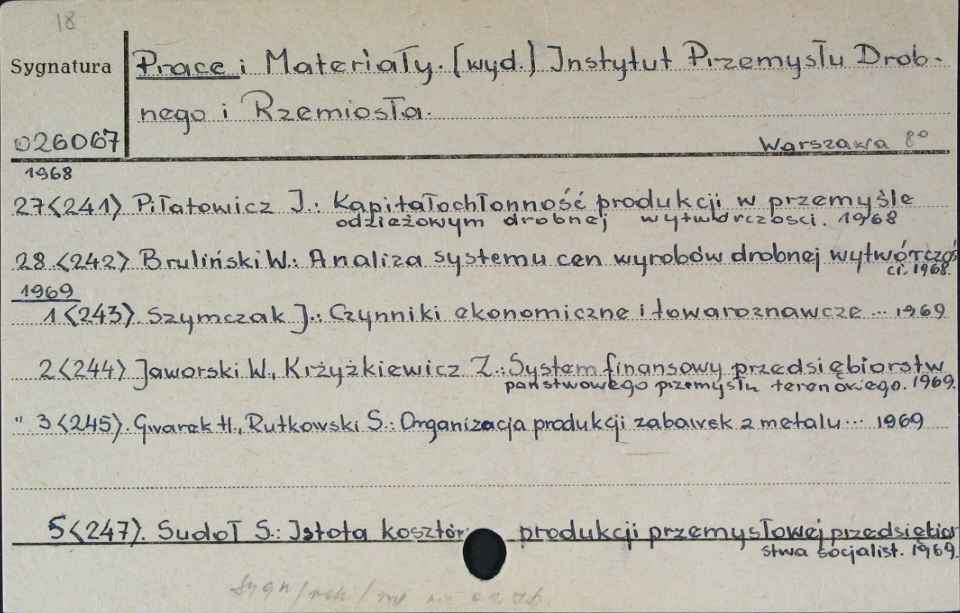 18
Sygnatura
Prace i Materiały. [wyd.] Instytut Przemysłu Drob-
nego i Rzemiosła.
026067
Warszawa 8°
1968
27<241> Piłatowicz J.: Kapitałochłonność produkcji w przemyśle
odzieżowym drobnej wytwórczości. 1968
28 <242> Bruliński W.: Analiza systemu cen wyrobów drobnej wytwórczoś
ci. 1968.
1969
1<243>. Szymczak J.: Czynniki ekonomiczne i towaroznawcze ... 1969
2<244> Jaworski W., Krżyżkiewicz Z.: System finansowy przedsiębiorstw
państwowego przemysłu terenowego. 1969.
" 3<245>. Gwarek H., Rutkowski S.: Organizacja produkcji zabawek z metalu ... 1969
5<247>. Sudoł S.: Istota kosztów produkcji przemysłowej przedsiębior
stwa socjalist. 1969.